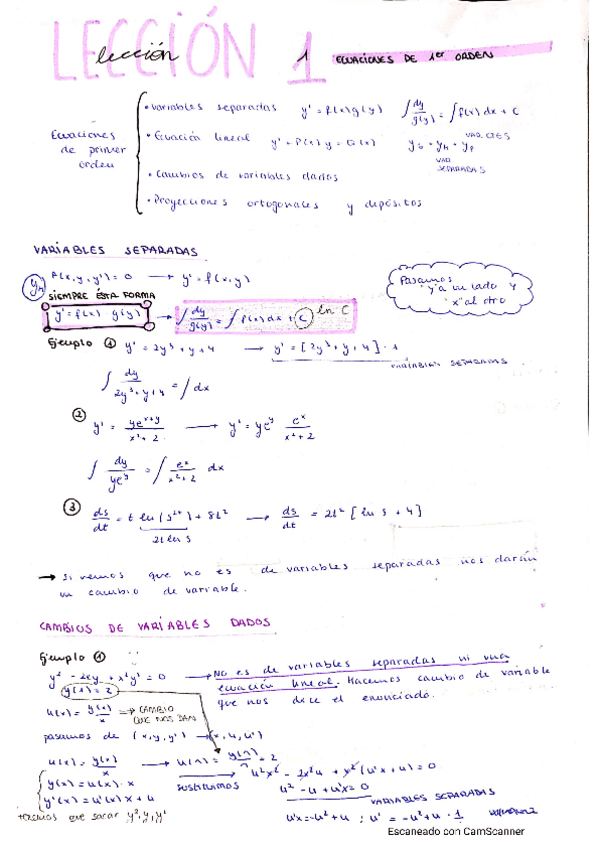 LECCIÓN 1
lección
1 ECUACIONES DE 1er ORDEN
Ecuaciones de primer orden
• variables separadas y' = f(x)g(y) ∫ dy/g(y) = ∫ f(x) dx + C
• Ecuación lineal y' + P(x) y = G(x) yG = yH + yP
VAR. CTES
VAR SEPARADAS
• Cambios de variables dados
• Proyecciones ortogonales y depósitos
VARIABLES SEPARADAS
F(x, y, y') = 0 → y' = f(x, y)
SIEMPRE ÉSTA FORMA
y' = f(x) · g(y) → ∫ dy/g(y) = ∫ f(x) dx + C ln C
Pasamos
'y' a un lado y
'x' al otro
Ejemplo ① y' = 2y³ + y + 4 → y' = [2y³ + y + 4] · 1
VARIABLES SEPARADAS
∫ dy/2y³ + y + 4 = ∫ dx
② y' = ye^(x+y)/x² + 2 → y' = ye^y e^x/x² + 2
∫ dy/ye^y = ∫ e^x/x² + 2 dx
③ ds/dt = t ln(s^2t) + 8t² → ds/dt = 2t² [ln s + 4]
2t ln s
→ Si vemos que no es de variables separadas nos darán
un cambio de variable.
CAMBIOS DE VARIABLES DADOS
Ejemplo ①
y² - 2xy + x²y' = 0 → No es de variables separadas ni una
y(1) = 2
ecuación lineal. Hacemos cambio de variable
que nos dice el enunciado.
u(x) = y(x)/x → CAMBIO
QUE NOS DAN
pasamos de (x, y, y') → (x, u, u')
u(x) = y(x)/x → u(1) = y(1)/1 = 2
y(x) = u(x) · x
y'(x) = u'(x) x + u
sustituimos
u²x² - 2x²u + x²(u'x + u) = 0
u² - u + u'x = 0
VARIABLES SEPARADAS
tenemos que sacar y², y, y'
u'x = -u² + u ; u' = -u² + u · 1
Escaneado con CamScanner